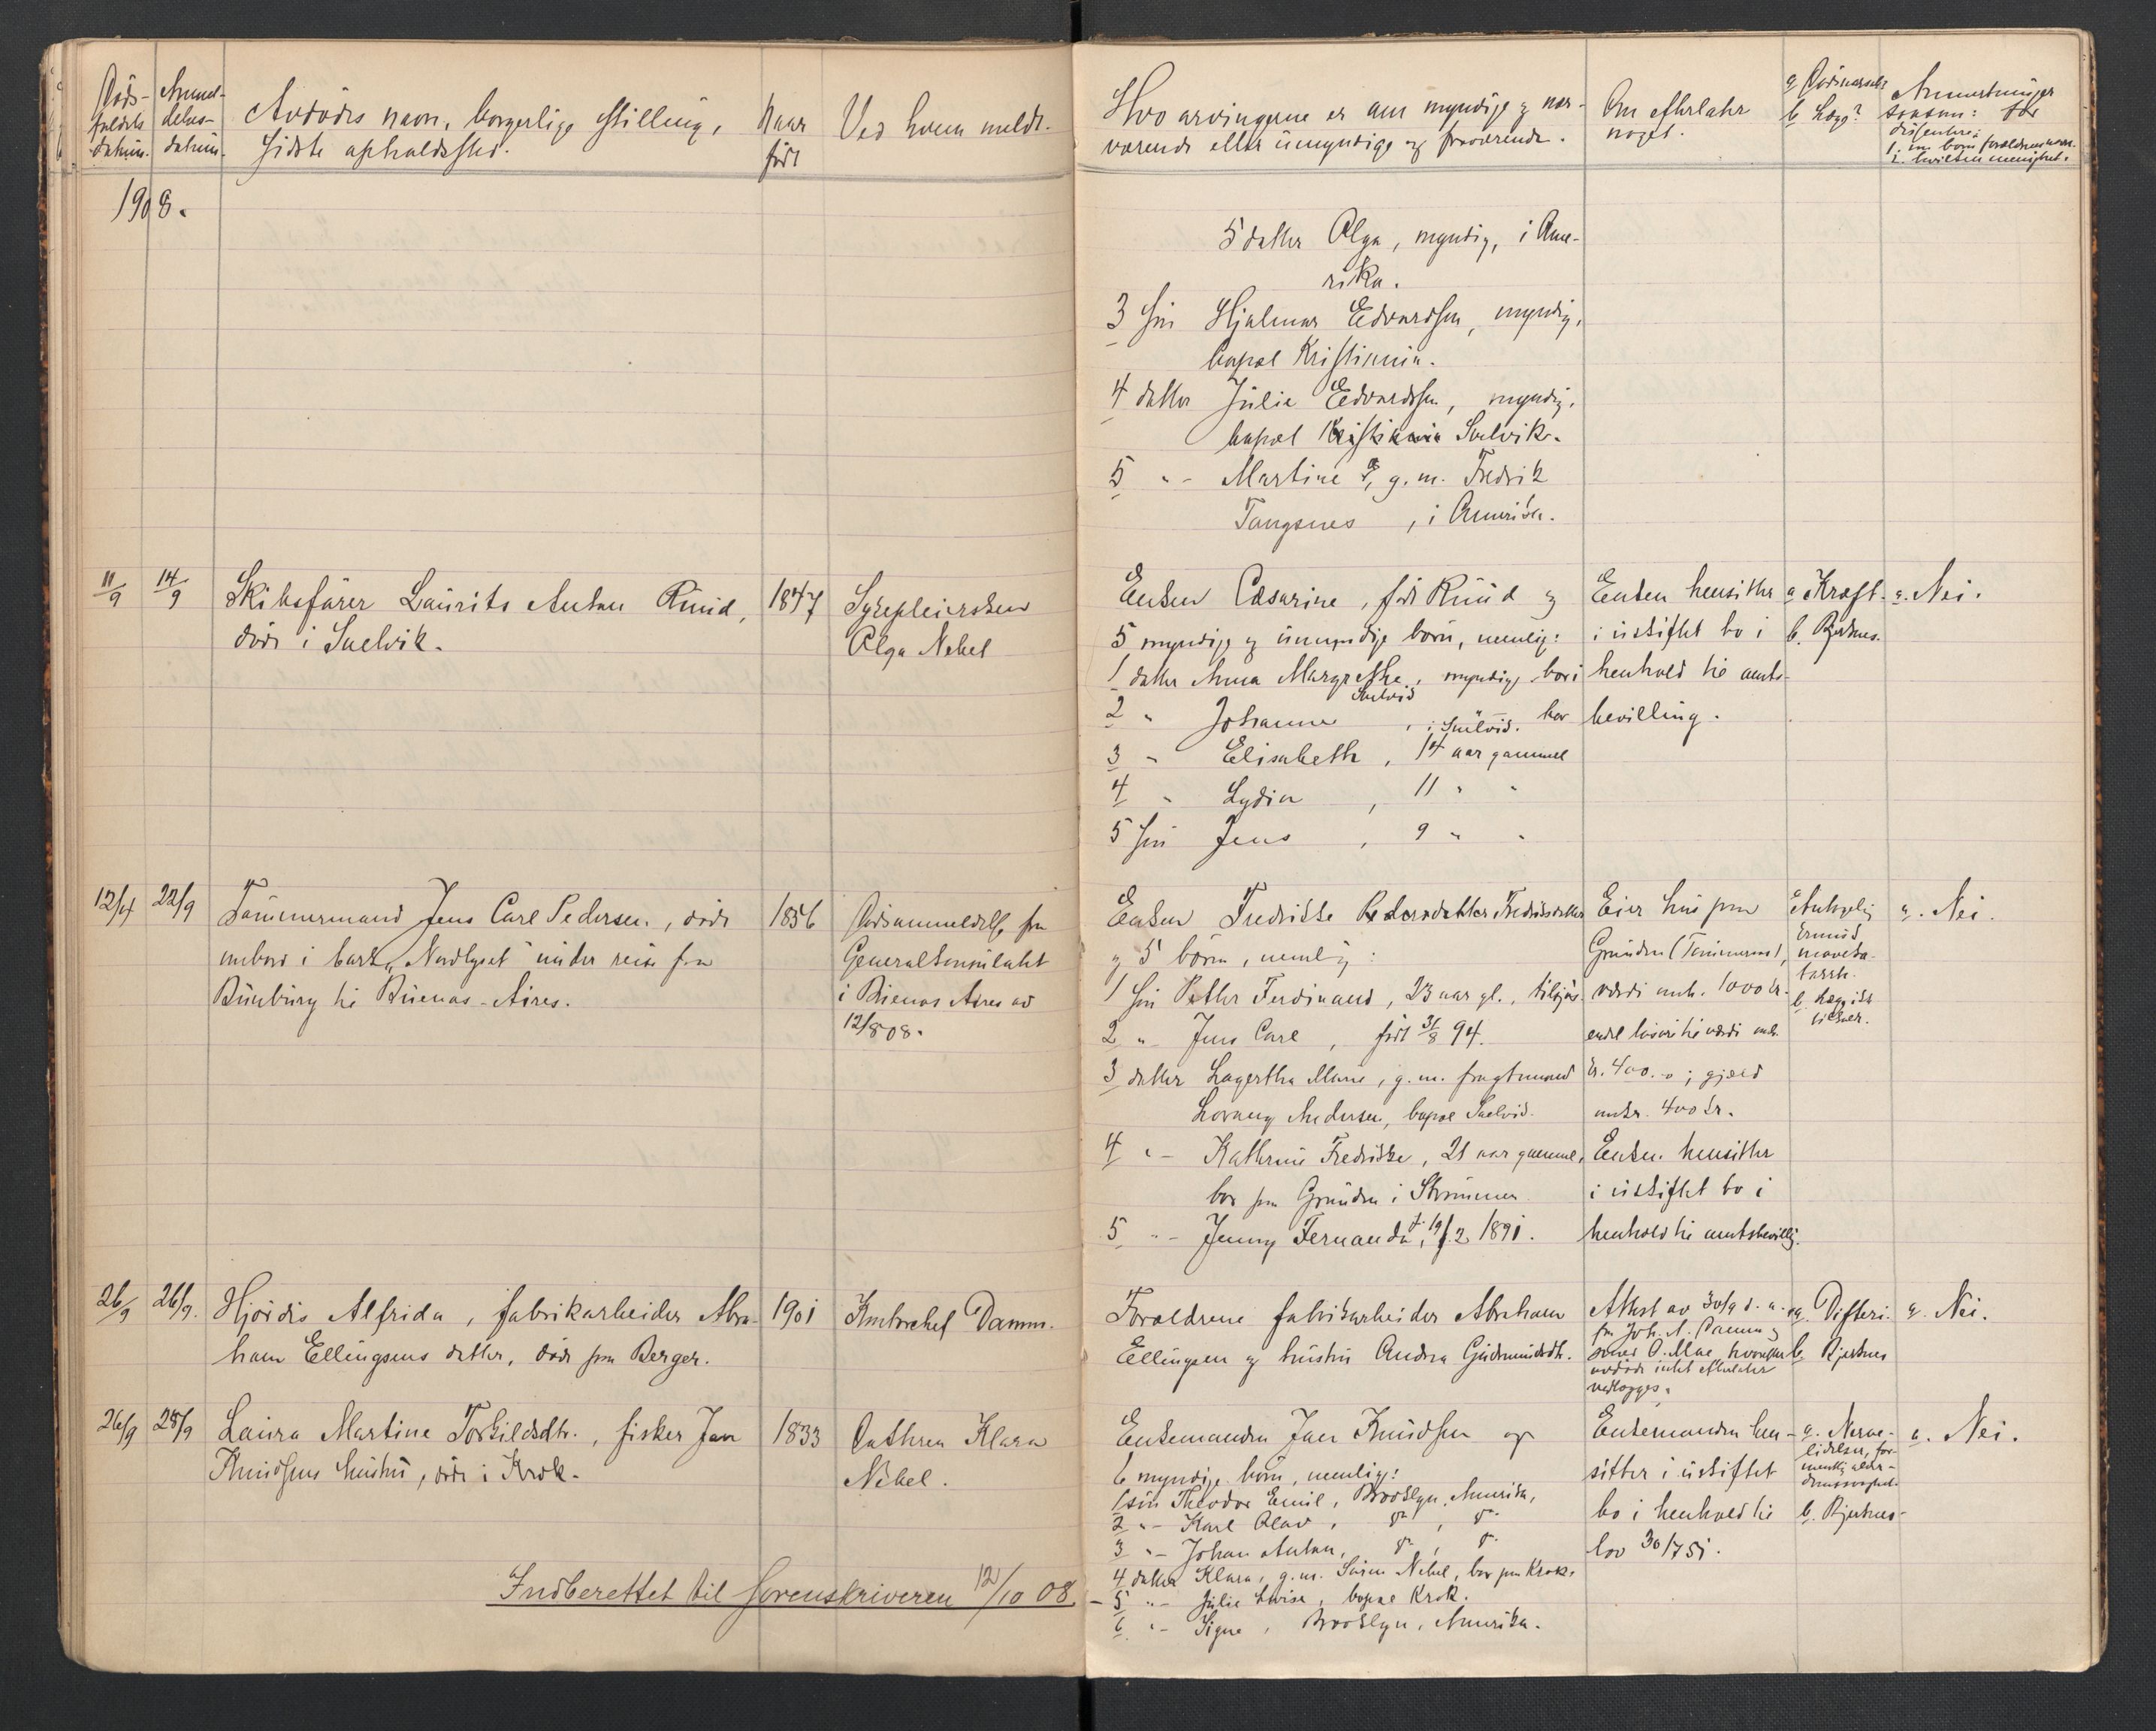 Døds-
faldets
datum.
Anmel-
delses-
datum.
Avdødes navn, borgerlige stilling,
sidste opholdssted.
Naar
født
Ved hvem meldt.
Hvo arvingerne er om myndige og nær-
værende eller umyndige og fraværende.
Om efterlater
noget.
a Dødsaarsak?
b Læge?
Anmerkninger
saasom: for
dissentere:
1908.
5 datter Olga, myndig, i Ame-
rika.
3 søn Hjalmar Edvardsen, myndig,
bopæl Kristiania.
4 datter Julie Edvardsen, myndig,
bopæl Kristiania Svelvik.
5 "- Martine ?, g.m. Fredrik
Tangsnes , i Amerika.
11/9 14/9 Skibsfører Laurits Anton Ruud,
døde i Svelvik.
1847
Sykepleiersken
Olga Nebel
Enken Cæsarine, født Ruud og
5 myndige og umyndige børn, nemlig:
1 datter Anna Margrethe, myndig, bor i
Svelvik
2 " Johanne , i Svelvik. bor
3 " Elisabeth , 14 aar gammel
4 " Lydia , 11 " "
5 søn Jens , 9 " "
Enken hensitter
i uskiftet bo i
henhold til amts-
bevilling.
a Kræft.
b. Bjerknes.
a. Nei.
12/4 22/9 Tømmermand Jens Carl Pedersen, døde
ombord i bark "Nordlyset" under reise fra
Bunbury til Buenos-Aires.
1856
Dødsanmeldelse fra
Generalkonsulatet
i Buenos Aires av
12/8 08.
Enken Fredrikke Pedersdatter Fredriksdatter
og 5 børn, nemlig:
1 søn Petter Ferdinand, 23 aar gl., tilsjøs.
2 " Jens Carl , født 31/8 94.
3 datter Lagertha Marie, g.m. fragtmand
Andersen, bopæl Svelvik.
4 "- Kathrine Fredrikke, 21 aar gammel,
bor paa Grunden i Strømmen
5 "- Jenny Fernanda, f. 19/2 1891.
Eier hus paa
Grunden (Tømmeraas),
værdi omk. 1000 kr.
endel løsøre til værdi omk.
kr. 400.-; gjæld
omkr. 400 kr.
Enken hensitter
i uskiftet bo i
henhold til amtsbevillg.
a Antagelig
kronisk
maveka-
tarrh.
b. Læge ikke
tilstede.
a. Nei.
26/9 26/9. Hjørdis Alfrida, fabrikarbeider Abra-
ham Ellingsens datter, døde paa Berger.
1901
Kirketjener Damm.
Forældrene fabrikarbeider Abraham
Ellingsen og hustru Andrea Gudmundsdtr.
Attest av 30/9 d.a.
fra Joh. A. Damm og
O. Moe, hvorefter
avdøde intet efterlater
vedlægges.
a. Difteri.
b. Bjerknes
a. Nei.
26/9 28/9 Laura Martine Torkildsdtr., fisker Jan
Knudsens hustru, døde i Krok.
1833
Datteren Klara
Nebel.
Enkemanden Jan Knudsen og
6 myndige børn, nemlig:
1 søn Theodor Emil, Brooklyn, Amerika,
2 "- Karl Olav, do , do
3 "- Johan Anton, do , do
4 datter Klara, g.m. Søren Nebel, bor paa Krok.
5 "- Julie Lovise, bopæl Krok.
6 "- Signe , Brooklyn, Amerika.
Enkemanden hen-
sitter i uskiftet
bo i henhold til
lov 30/7 51.
a. Nerve-
lidelse, for-
mentlig alder-
domssvaghet.
b. Bjerknes
a. Nei.
Indberettet til sorenskriveren 12/10 08.